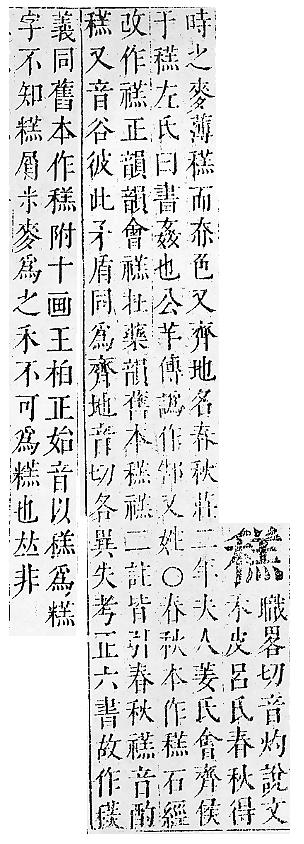 䅵
職畧切音灼說文
禾皮呂氏春秋得
時之麥薄䅵而赤色又齊地名春秋莊二年夫人姜氏會齊侯
于䅵左氏曰書姦也公羊傳譌作郜又姓○春秋本作䅵石經
改作禚正韻韻會禚壯藥韻舊本䅵禚二註皆引春秋禚音酌
䅵又音谷彼此矛盾同爲齊地音切各異失考正六書故作
義同舊本作䅵附十画王柏正始音以䅵爲糕
字不知糕屬米麥爲之禾不可爲糕也𠀤非